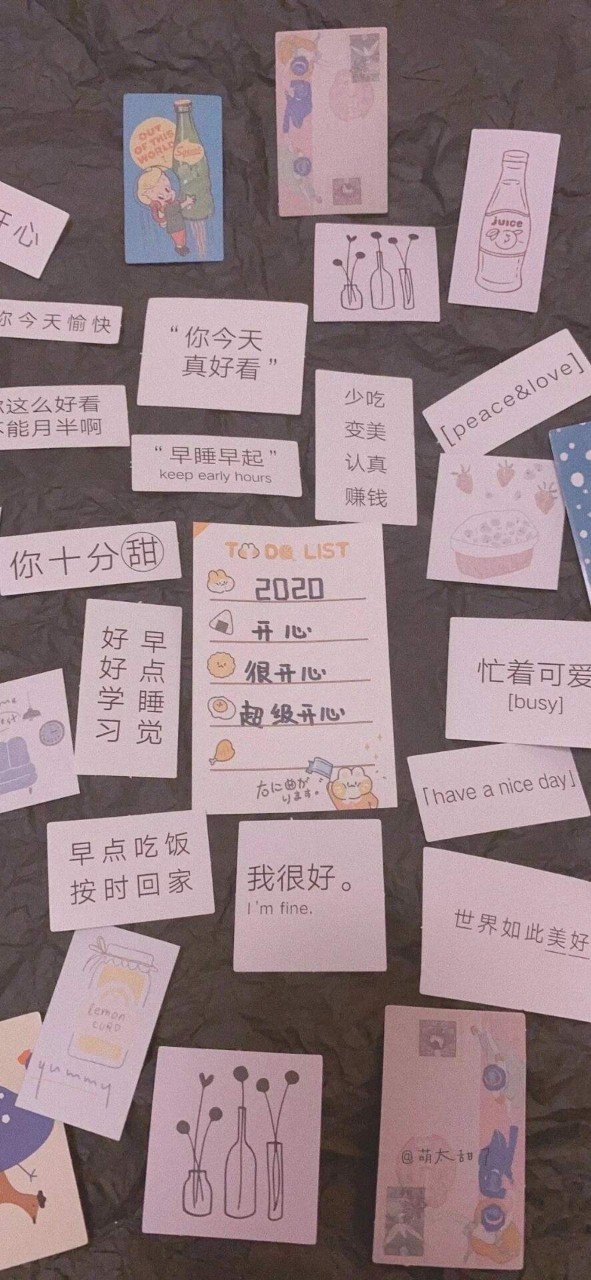 OUT
OF THIS
WORLD
开心
Juice
你今天愉快
“你今天
真好看”
[peace&love]
你这么好看
不能月半啊
少吃
变美
认真
赚钱
“早睡早起”
keep early hours
你十分甜
TO DO LIST
2020
开心
很开心
超级开心
右に曲が
ります。
早点睡觉
好好学习
忙着可爱
[busy]
「have a nice day」
早点吃饭
按时回家
我很好。
I'm fine.
世界如此美好
lemon
CURD
yummy
@萌太甜了